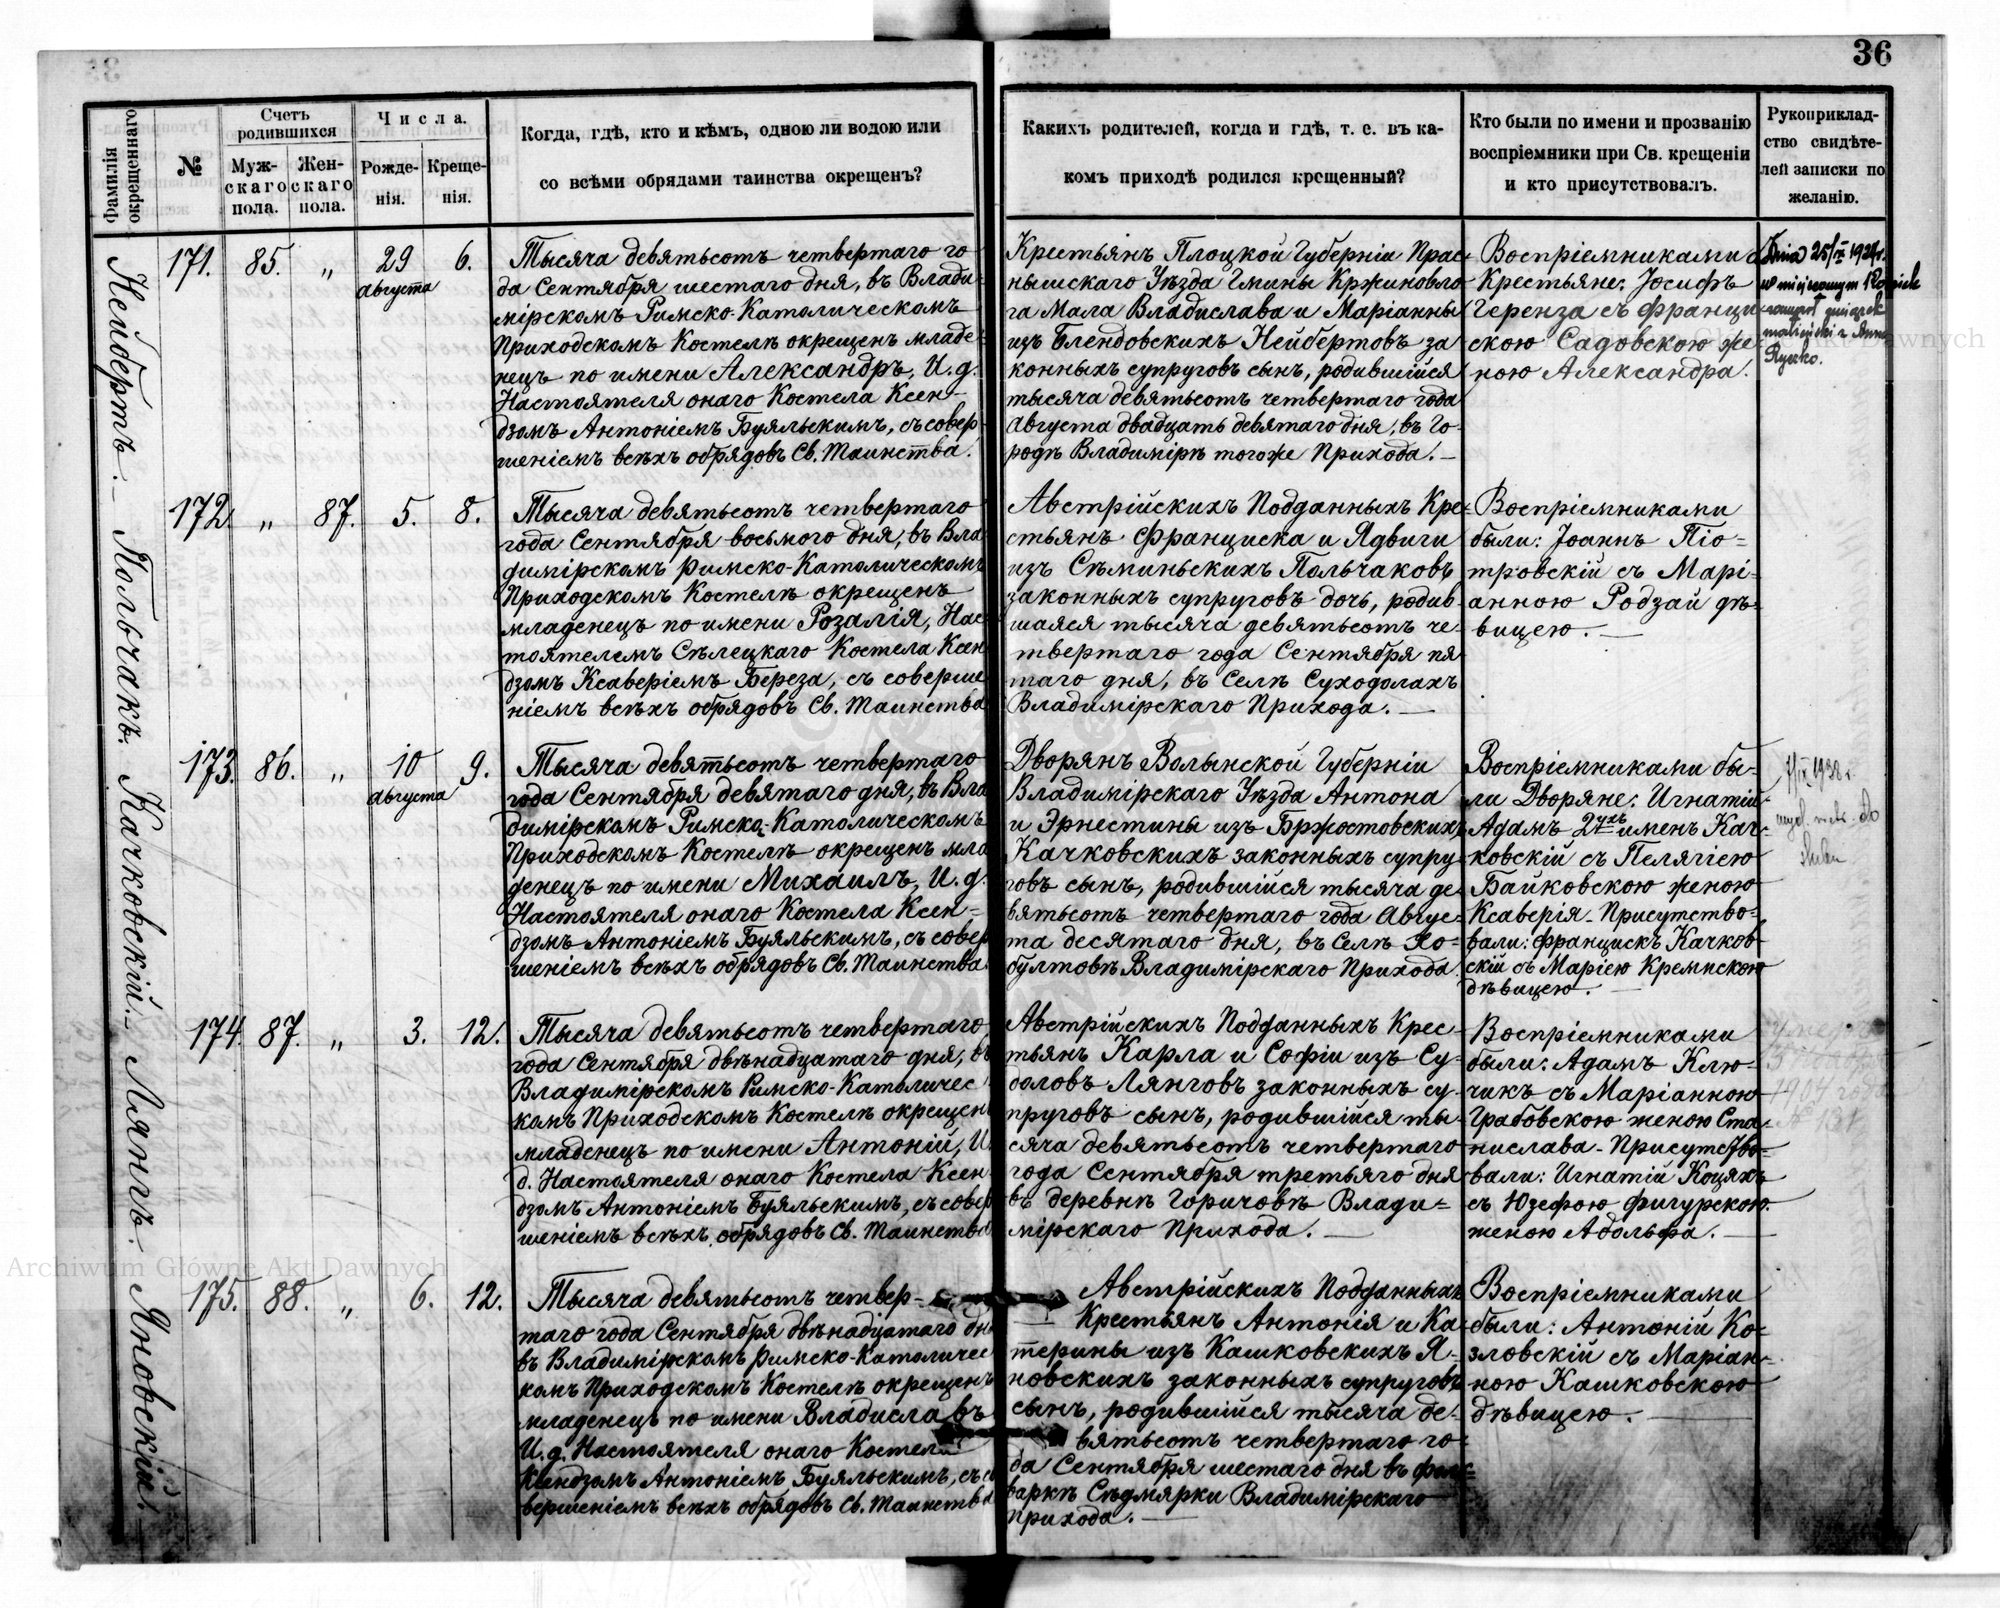 36
Фамилія окрещеннаго
№
Счетъ родившихся
Муж-
скаго
пола.
Жен-
скаго
пола.
Числа.
Рожде-
нія.
Креще-
нія.
Когда, гдѣ, кто и кѣмъ, одною ли водою или
со всѣми обрядами таинства окрещенъ?
Какихъ родителей, когда и гдѣ, т. е. въ ка-
комъ приходѣ родился крещенный?
Кто были по имени и прозванію
воспріемники при Св. крещеніи
и кто присутствовалъ.
Рукоприклад-
ство свидѣте-
лей записки по
желанію.
Нейбертъ.
171.
85.
„
29
августа
6.
Тысяча девятьсотъ четвертаго го-
да Сентября шестаго дня, въ Влади-
мірскомъ Римско-Католическомъ
Приходскомъ Костелѣ окрещенъ младе-
нецъ по имени Александръ, И. д.
Настоятеля онаго Костела Ксен-
дзомъ Антоніемъ Буяльскимъ, съ совер-
шеніемъ всѣхъ обрядовъ Св. Таинства.
Крестьянъ Плоцкой Губерніи Прас-
нышскаго Уѣзда Гмины Кржиновло-
га Мала Владислава и Маріанны
изъ Блендовскихъ Нейбертовъ за
конныхъ супруговъ сынъ, родившійся
тысяча девятьсотъ четвертаго года
Августа двадцать девятаго дня, въ Го-
родѣ Владимірѣ тогоже Прихода. —
Воспріемниками
Крестьяне: Іосифъ
Геренза съ Франци
скою Садовскою же
ною Александра.
Dnia 25/IX 1929 r.
w miejscowym
związek
małżeński z Anną
Ryczko.
Польчакъ.
172.
„
87.
5.
8.
Тысяча девятьсотъ четвертаго
года Сентября восьмого дня, въ Вла
димірскомъ Римско-Католическомъ
Приходскомъ Костелѣ окрещенъ
младенецъ по имени Розалія, Нас
тоятелемъ Сѣлецкаго Костела Ксен
дзомъ Ксаверіемъ Береза, съ соверше
ніемъ всѣхъ обрядовъ Св. Таинства
Австрійскихъ Подданныхъ Кре-
стьянъ Франциска и Ядвиги
изъ Сѣминьскихъ Польчаковъ
законныхъ супруговъ дочь, родив-
шаяся тысяча девятьсотъ че-
твертаго года Сентября пя
таго дня, въ Селѣ Суходолахъ
Владимірскаго Прихода. —
Воспріемниками
были: Іоаннъ Піо-
тровскій съ Марі-
анною Родзай дѣ-
вицею. —
Качковскій.
173.
86.
„
10
августа
9.
Тысяча девятьсотъ четвертаго
года Сентября девятаго дня, въ Вла
димірскомъ Римско-Католическомъ
Приходскомъ Костелѣ окрещенъ мла
денецъ по имени Михаилъ, И. д.
Настоятеля онаго Костела Ксен-
дзомъ Антоніемъ Буяльскимъ, съ совер
шеніемъ всѣхъ обрядовъ Св. Таинства
Дворянъ Волынской Губерніи
Владимірскаго Уѣзда Антона
и Эрнестины изъ Бржостовскихъ
Качковскихъ законныхъ супру-
говъ сынъ, родившійся тысяча де-
вятьсотъ четвертаго года Авгус-
та десятаго дня, въ Селѣ Хо-
бултовѣ Владимірскаго Прихода.
Воспріемниками бы-
ли Дворяне: Игнатій-
Адамъ 2ухъ именъ Кач-
ковскій съ Пелягіею
Байковскою женою
Ксаверія. Присутство-
вали: Францискъ Качков-
скій съ Маріею Кремпскою
дѣвицею. —
1938 r.
do
ślubu
Лянгъ.
174.
87.
„
3.
12.
Тысяча девятьсотъ четвертаго
года Сентября двѣнадцатаго дня, въ
Владимірскомъ Римско-Католичес
комъ Приходскомъ Костелѣ окрещенъ
младенецъ по имени Антоній, И.
д. Настоятеля онаго Костела Ксен
дзомъ Антоніемъ Буяльскимъ, съ совер
шеніемъ всѣхъ обрядовъ Св. Таинства
Австрійскихъ Подданныхъ Крес-
тьянъ Карла и Софіи изъ Су-
доловъ Лянговъ законныхъ су-
пруговъ сынъ, родившійся ты-
сяча девятьсотъ четвертаго
года Сентября третьяго дня
въ деревнѣ Горичовѣ Влади-
мірскаго Прихода. —
Воспріемниками
были: Адамъ Клю-
чикъ съ Маріанною
Грабовскою женою Ста-
нислава. Присутство-
вали: Игнатій Коцякъ
съ Юзефою Фигурскою
женою Адольфа. —
1904 года
№ 131
Яновскій.
175.
88.
„
6.
12.
Тысяча девятьсотъ четвер-
таго года Сентября двѣнадцатаго дня
въ Владимірскомъ Римско-Католичес
комъ Приходскомъ Костелѣ окрещенъ
младенецъ по имени Владиславъ
И. д. Настоятеля онаго Костела
Ксендзомъ Антоніемъ Буяльскимъ, съ со
вершеніемъ всѣхъ обрядовъ Св. Таинства
Австрійскихъ Подданныхъ
Крестьянъ Антонія и Ка-
терины изъ Кашковскихъ Я-
новскихъ законныхъ супруговъ
сынъ, родившійся тысяча де-
вятьсотъ четвертаго го-
да Сентября шестаго дня въ фоль-
варкѣ Сѣдмярки Владимірскаго
Прихода. —
Воспріемниками
были: Антоній Ко-
зловскій съ Маріан-
ною Кашковскою
дѣвицею. —
Archiwum Główne Akt Dawnych
Archiwum Główne Akt Dawnych